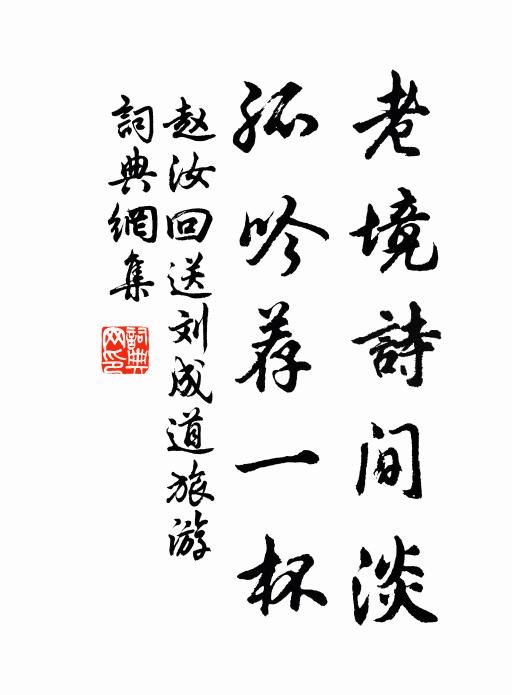 老境詩间淡
孤吟荐一杯
赵汝回送刘成道旅游
詞典網集
詞典
网印